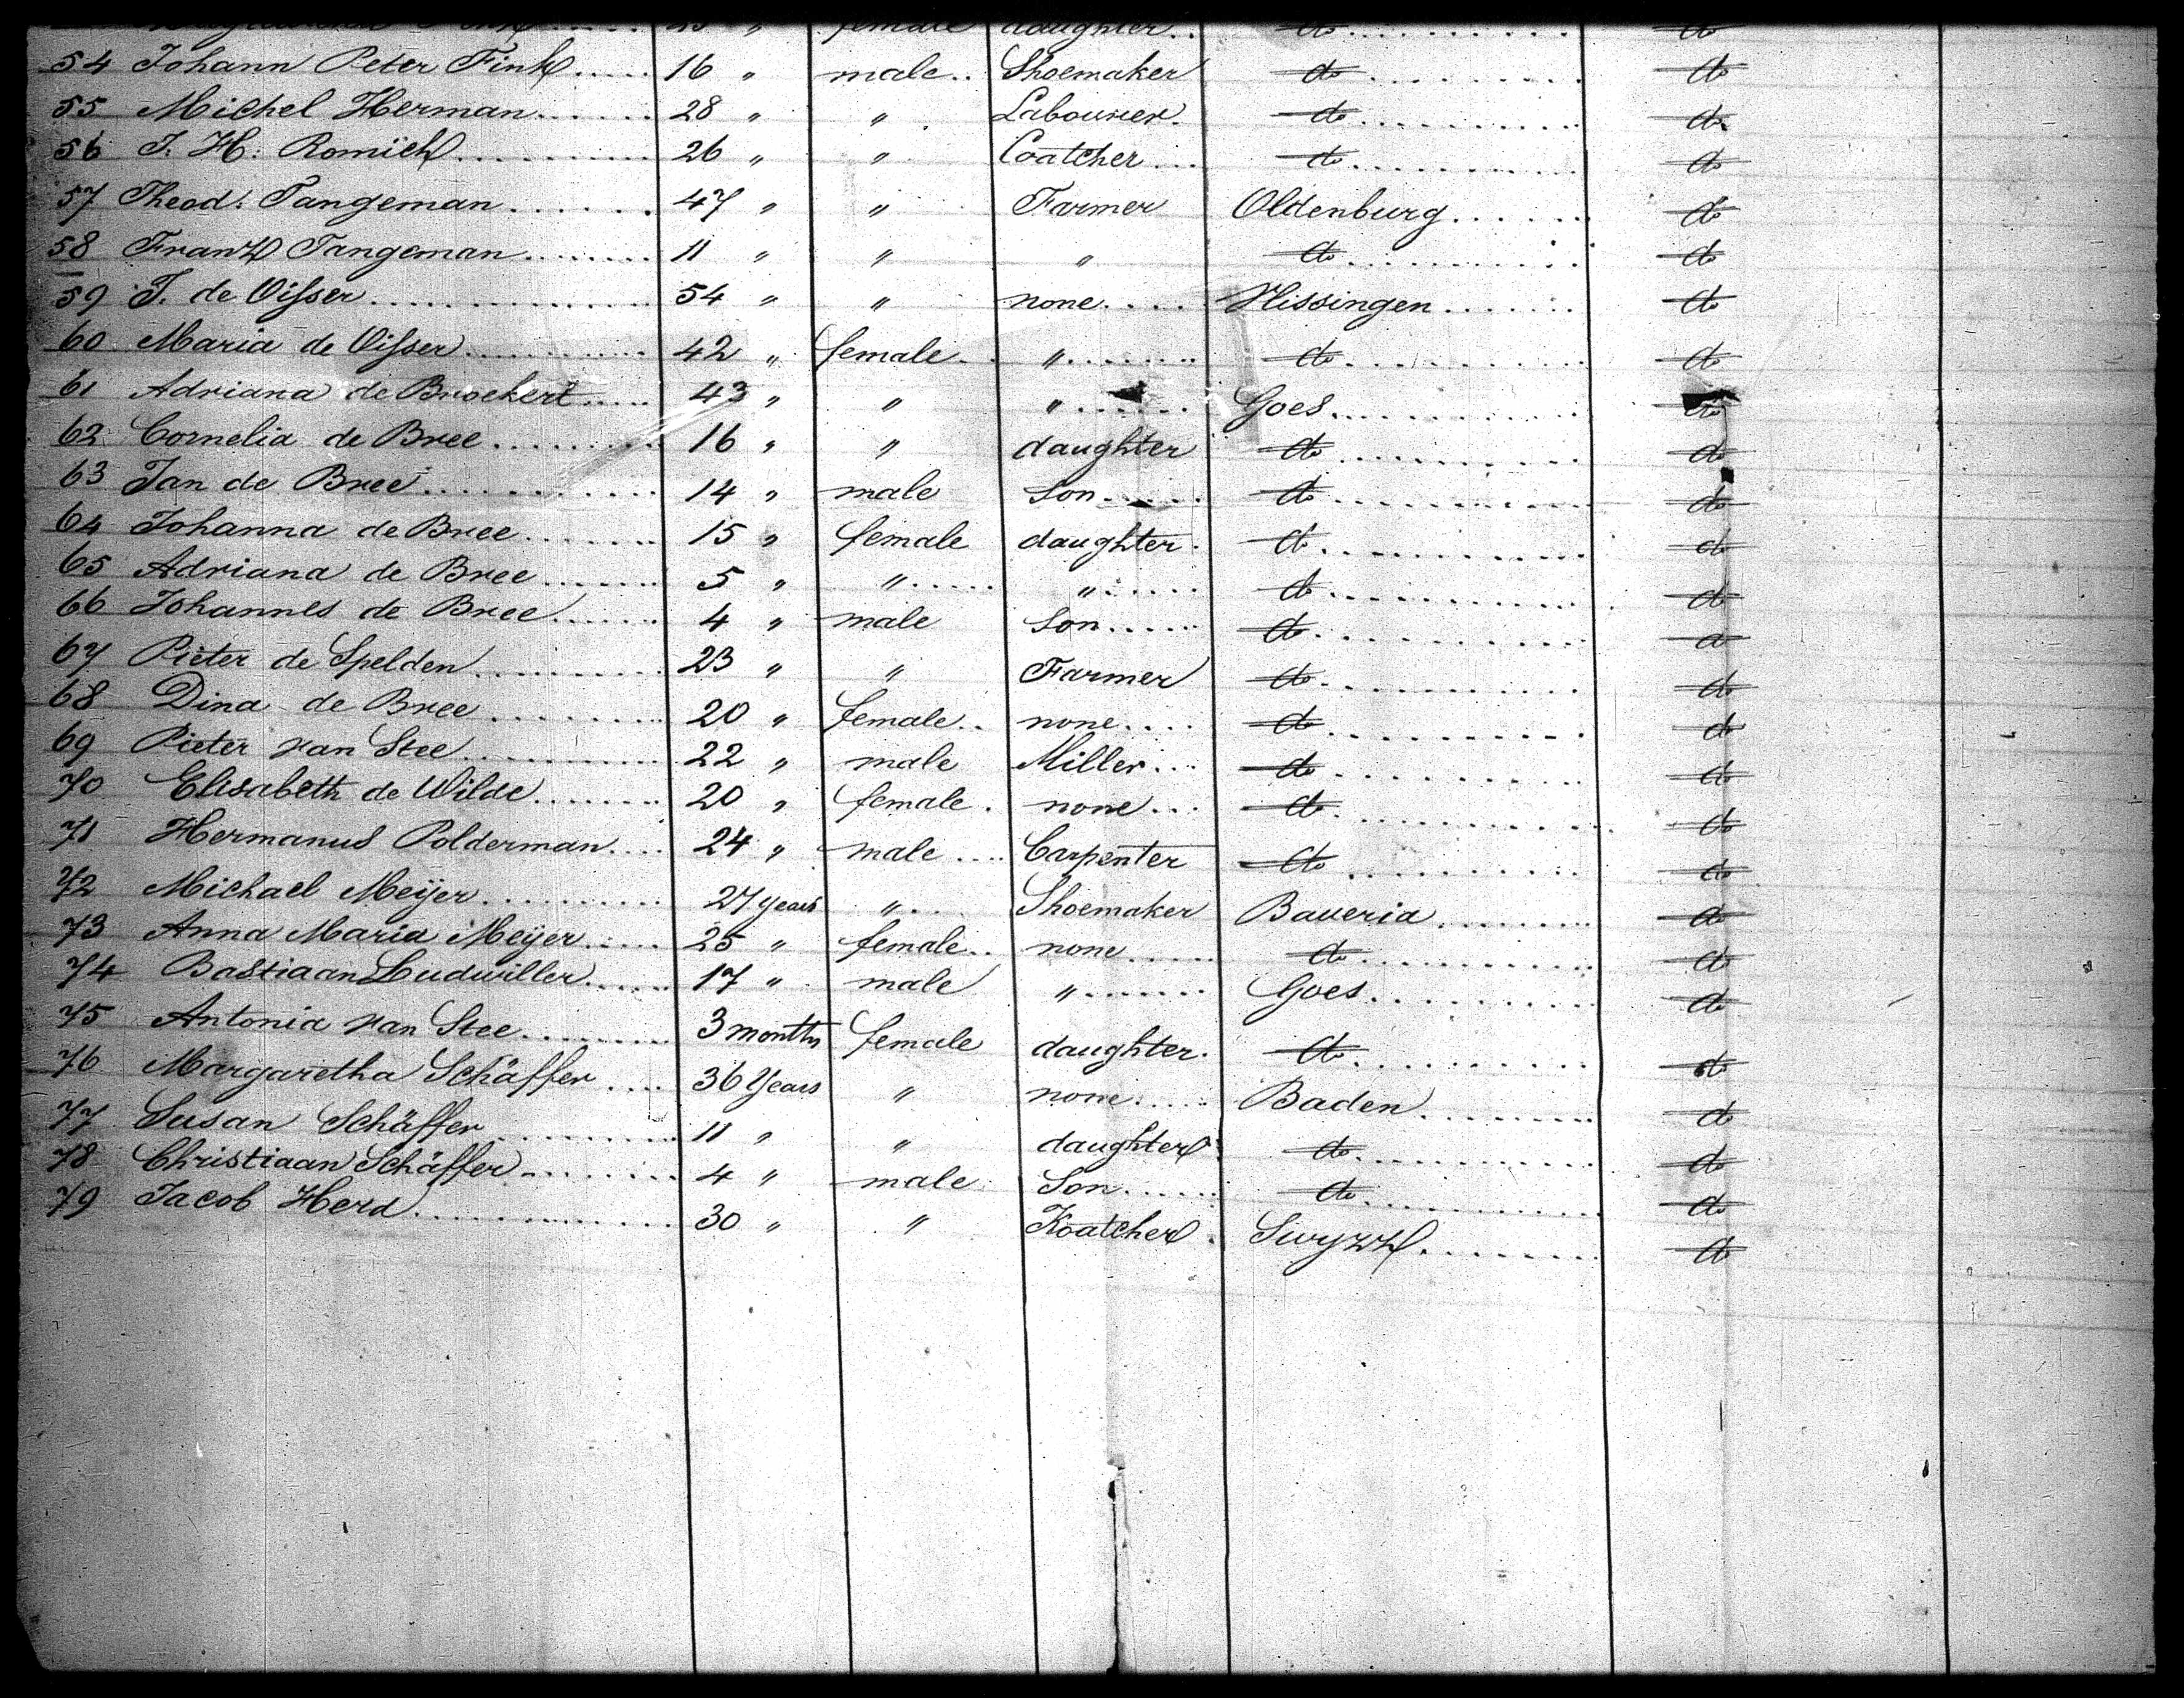 female daughter do do
54 Johann Peter Fink 16 " male Shoemaker do do
55 Michel Herman 28 " " Labourer do do
56 J. H. Romich 26 " " Coatcher do do
57 Theod. Tangeman 47 " " Farmer Oldenburg do
58 Frantz Tangeman 11 " " " do do
59 J. de Visser 54 " " none Flissingen do
60 Maria de Visser 42 " female " do do
61 Adriana de Broekert 43 " " " Goes do
62 Cornelia de Bree 16 " " daughter do do
63 Jan de Bree 14 " male son do do
64 Johanna de Bree 15 " female daughter do do
65 Adriana de Bree 5 " " " do do
66 Johannes de Bree 4 " male Son do do
67 Pieter de Spelden 23 " " Farmer do do
68 Dina de Bree 20 " female none do do
69 Pieter van Stee 22 " male Miller do do
70 Elisabeth de Wilde 20 " female none do do
71 Hermanus Polderman 24 " male Carpenter do do
72 Michael Meijer 27 years " Shoemaker Baueria do
73 Anna Maria Meijer 25 " female none do do
74 Bastiaan Ludwiller 17 " male " Goes do
75 Antonia van Stee 3 months female daughter do do
76 Margaretha Schäffer 36 Years " none Baden do
77 Susan Schäffer 11 " " daughter do do
78 Christiaan Schäffer 4 " male Son do do
79 Jacob Herd 30 " " Koatcher Swyzz do